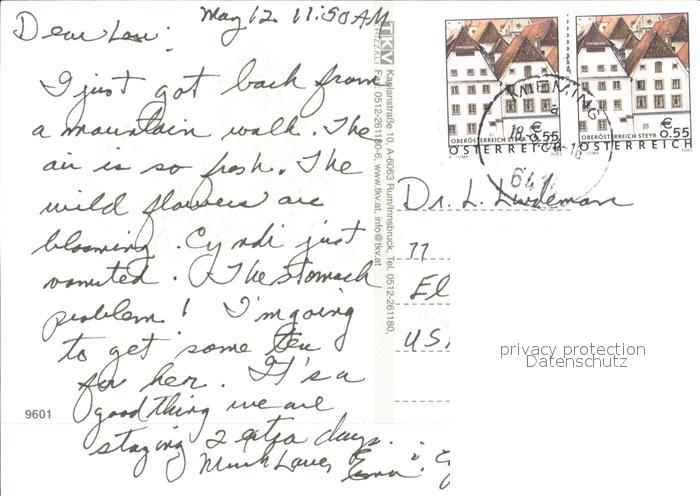 May 12 11:50 AM
Dear Lou:
I just got back from
a mountain walk. The
air is so fresh. The
wild flowers are
blooming. Cyndi just
vomited. The stomach
problem! I'm going
to get some tea
for her. It's a
good thing we are
staying 2 extra days.
Much Love,
9601
TKV
Kaplanstraße 10, A-6063 Rum/Innsbruck, Tel. 0512-261180,
Fax: 0512-261180-6, www.tkv.at, info@tkv.at
OBERÖSTERREICH STEYR
€ 0.55
ÖSTERREICH
OBERÖSTERREICH STEYR
€ 0.55
ÖSTERREICH
MIEMING
a
641
Dr. L. Lindeman
77
El
US
privacy protection
Datenschutz